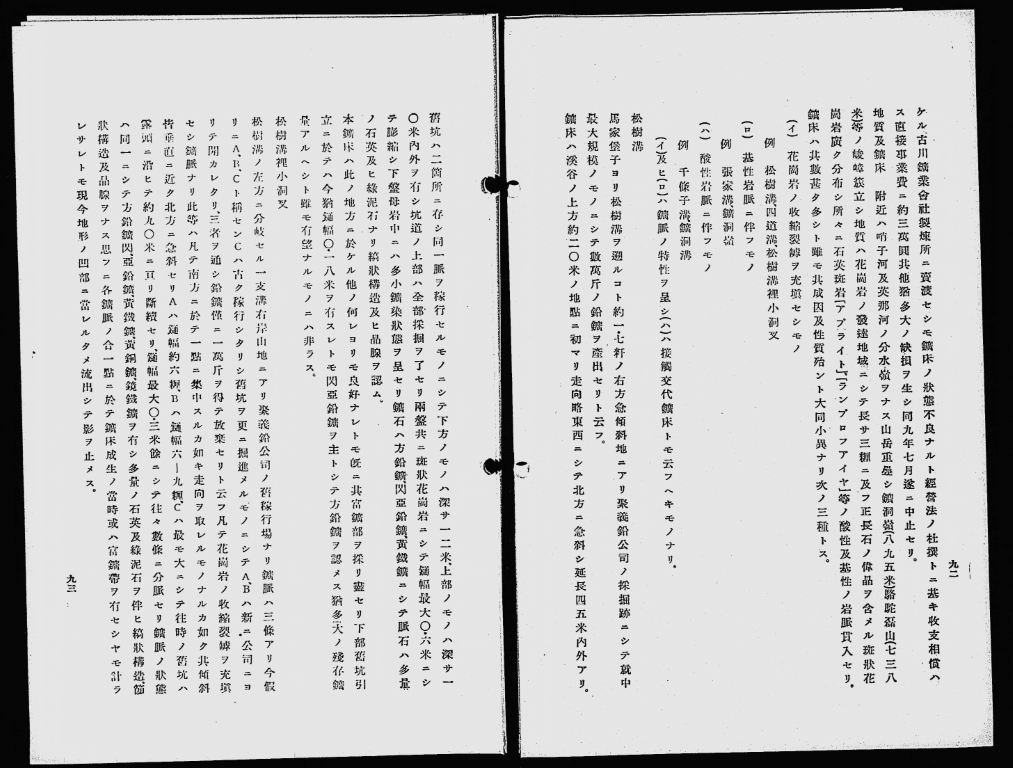 九二
ケル古川鑛業會社製煉所ニ賣渡セシモ鑛床ノ狀態不良ナルト經營法ノ杜撰トニ基キ收支相償ハ
ス直接事業費ニ約三萬圓其他猶多大ノ缺損ヲ生シ同九年七月遂ニ中止セリ。
地質及鑛床 附近ハ哨子河及英那河ノ分水嶺ヲナス山岳重疊シ鑛洞嶺(八九五米)駱駝磊山(七三八
米等ノ峻嶂簇立シ地質ハ花崗岩ノ發達地域ニシテ長サ三糎ニ及フ正長石ノ偉晶ヲ含メル斑狀花
崗岩廣ク分布シ所々ニ石英斑岩「アプライト」「ランプロフアイヤ」等ノ酸性及基性ノ岩脈貫入セリ。
鑛床ハ其數甚タ多シト雖モ其成因及性質殆ント大同小異ナリ次ノ三種トス。
(イ) 花崗岩ノ收縮裂罅ヲ充塡セシモノ
例 松樹溝、四道溝、松樹溝裡小洞叉
(ロ) 基性岩脈ニ伴フモノ
例 張家溝、鑛洞嶺
(ハ) 酸性岩脈ニ伴フモノ
例 千條子溝、鑛洞溝
(イ)及ヒ(ロ)ハ鑛脈ノ特性ヲ呈シ(ハ)ハ接觸交代鑛床トモ云フヘキモノナリ。
松樹溝
馬家堡子ヨリ松樹溝ヲ遡ルコト約一・七粁ノ右方急傾斜地ニアリ聚義鉛公司ノ採掘跡ニシテ就中
最大規模ノモノニシテ數萬斤ノ鉛鑛ヲ產出セリト云フ。
鑛床ハ溪谷ノ上方約二〇米ノ地點ニ初マリ走向略東西ニシテ北方ニ急斜シ延長四五米內外アリ。
舊坑ハ二箇所ニ存シ同一脈ヲ稼行セルモノニシテ下方ノモノハ深サ一二米、上部ノモノハ深サ一
〇米內外ヲ有シ坑道ノ上部ハ全部採掘ヲ了セリ兩盤共ニ斑狀花崗岩ニシテ鍾幅最大〇・六米ニシ
テ膨縮シ下盤母岩中ニハ多少鑛染狀態ヲ呈セリ鑛石ハ方鉛鑛、閃亞鉛鑛、黃鐵鑛ニシテ脈石ハ多量
ノ石英及ヒ綠泥石ナリ縞狀構造及ヒ晶腺ヲ認ム。
本鑛床ハ此ノ地方ニ於ケル他ノ何レヨリモ良好ナレトモ旣ニ其富鑛部ヲ採リ盡セリ下部舊坑引
立ニ於テハ今猶鍾幅〇・一八米ヲ有スレトモ閃亞鉛鑛ヲ主トシテ方鉛鑛ヲ認メス猶多大ノ殘存鑛
量アルヘシト雖モ有望ナルモノニハ非ラス。
松樹溝裡小洞叉
松樹溝ノ左方ニ分岐セル一支溝右岸山地ニアリ聚義鉛公司ノ舊稼行場ナリ鑛脈ハ三條アリ今假
リニA、B、Cト稱センCハ古ク稼行シタリシ舊坑ヲ更ニ掘進メルモノニシテA、Bハ新ニ公司ニヨ
リテ開カレタリ、三者ヲ通シ鉛鑛僅ニ一萬斤ヲ得テ放棄セリト云フ凡テ花崗岩ノ收縮裂罅ヲ充塡
セシ鑛脈ナリ此等ハ凡テ南方ニ於テ一點ニ集中スルカ如キ走向ヲ取レルモノナルカ如ク其傾斜
皆垂直ニ近ク北方ニ急斜セリAハ鍾幅約六糎、Bハ鍾幅六—九糎、Cハ最モ大ニシテ往時ノ舊坑ハ
露頭ニ沿ヒテ約九〇米ニ亘リ斷續セリ、鍾幅最大〇・三米餘ニシテ往々數條ニ分脈セリ鑛脈ノ狀態
ハ同一ニシテ方鉛鑛、閃亞鉛鑛、黃鐵鑛、黃銅鑛、鏡鐵鑛ヲ有シ多量ノ石英及綠泥石ヲ伴ヒ縞狀構造、節
狀構造及晶腺ヲナス思フニ各鑛脈ノ合一點ニ於テ鑛床成生ノ當時或ハ富鑛帶ヲ有セシヤモ計ラ
レサレトモ現今地形ノ凹部ニ當レルタメ流出シテ影ヲ止メス。
九三